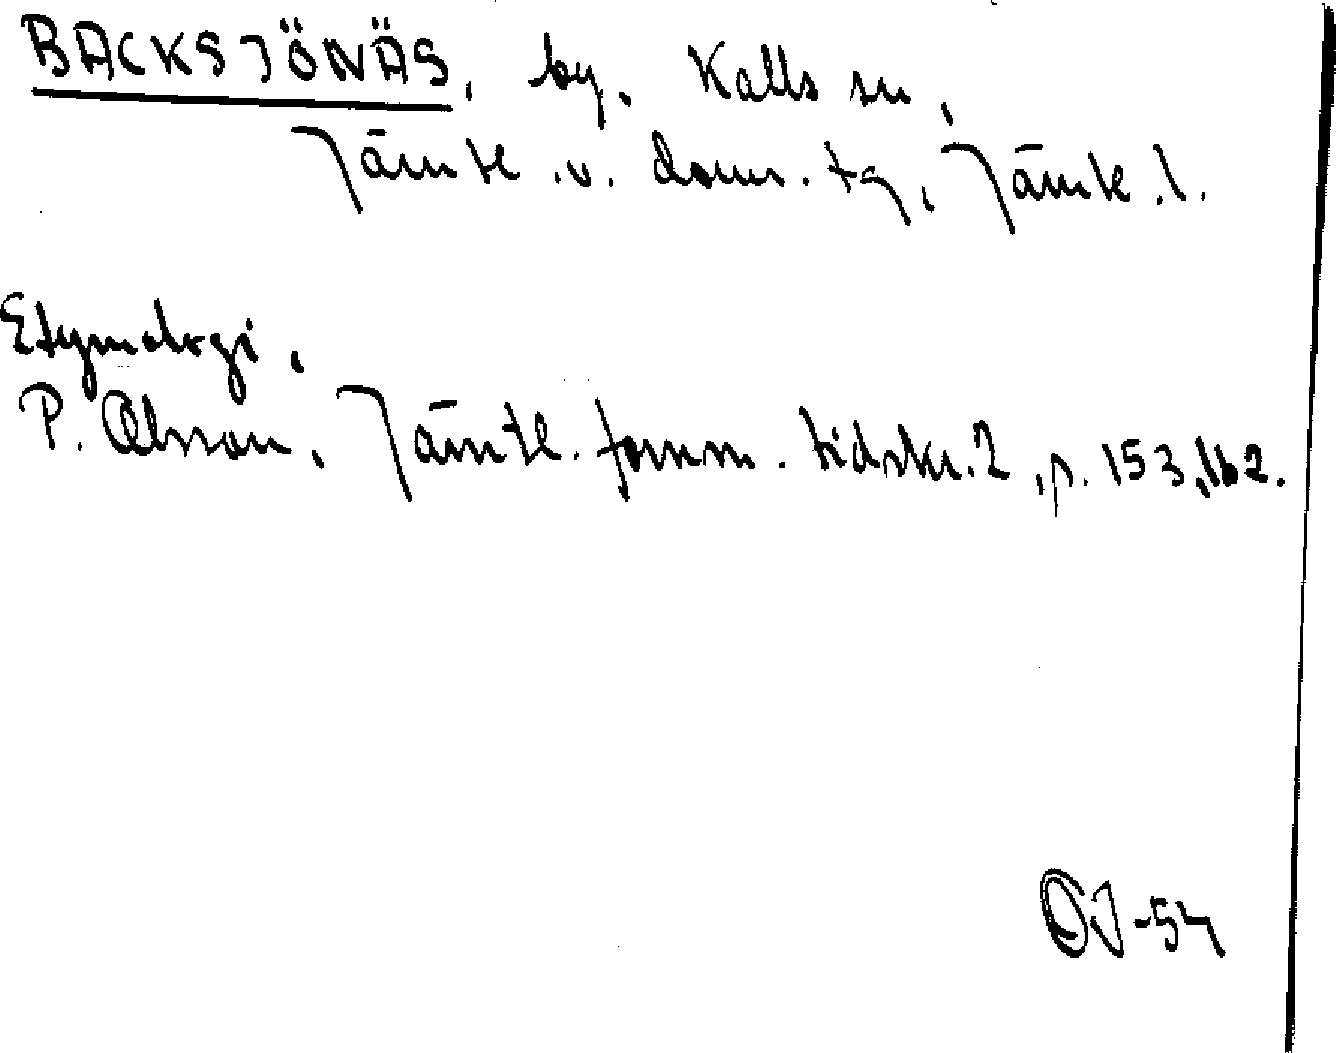 BACKSJÖNÄS, by, Kalls sn,
Jämtl. v. doms. tg, Jämtl. l.
Etymologi,
P. Olsson, Jämtl. fornm. tidskr. 2, p. 153, 162.
-54